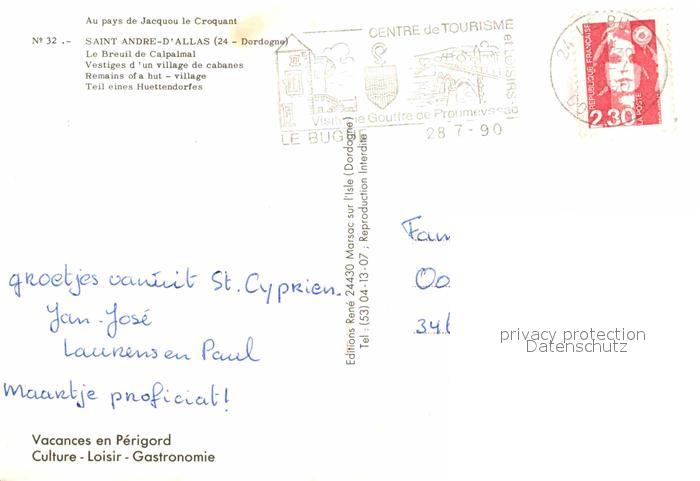 Au pays de Jacquou le Croquant
Nº 32 .- SAINT ANDRE-D'ALLAS (24 - Dordogne)
Le Breuil de Calpalmal
Vestiges d'un village de cabanes
Remains of a hut - village
Teil eines Huettendorfes
CENTRE de TOURISME
et LOISIRS
Visitez le Gouffre de Proumeyssac
LE BUGUE
28 7 - 90
REPUBLIQUE FRANÇAISE
LA POSTE
2,30
Editions René 24430 Marsac sur l'Isle (Dordogne)
Tel : (53) 04-13-07 ; Reproduction Interdite
Fam
Oo
34
privacy protection
Datenschutz
groetjes vanuit St. Cyprien.
Jan-José
Laurens en Paul
Maartje proficiat!
Vacances en Périgord
Culture - Loisir - Gastronomie